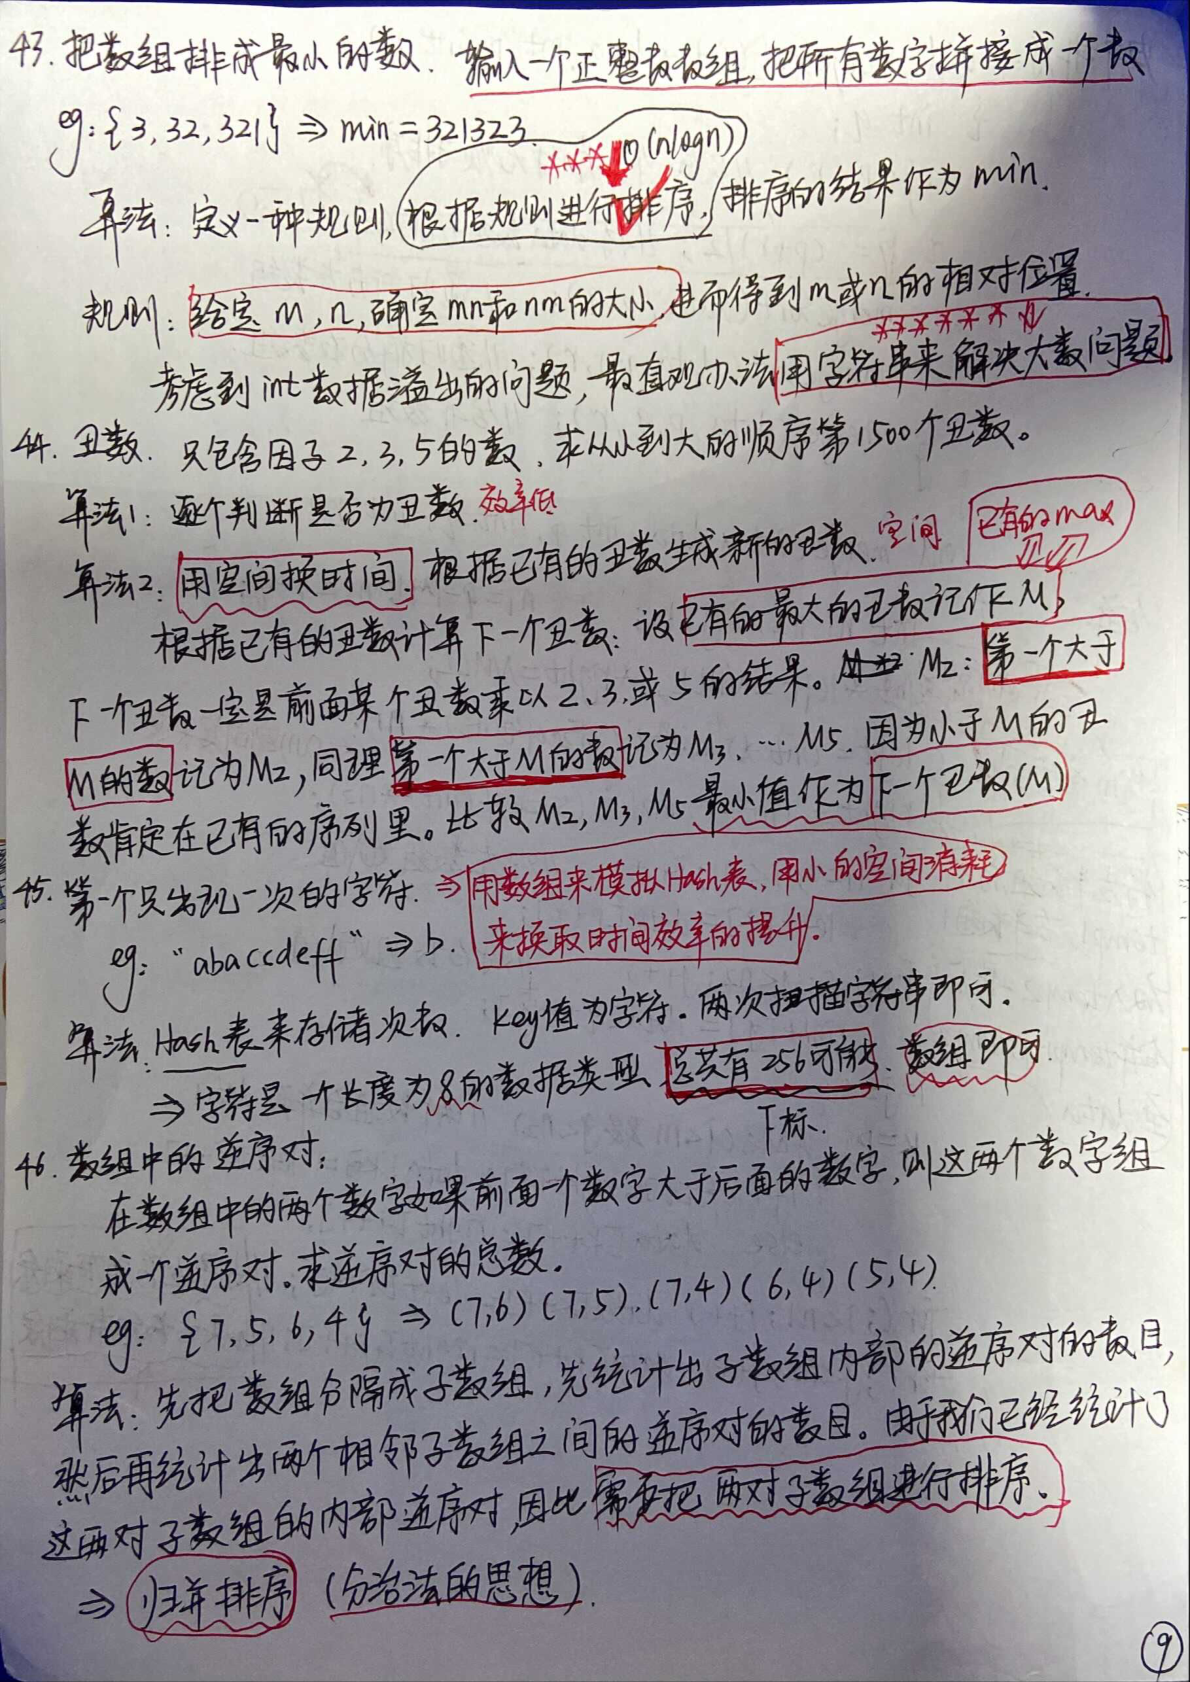 43. 把数组排成最小的数. 输入一个正整数数组,把所有数字拼接成一个数
eg: {3, 32, 321} ⇒ min = 321323.
*** O(nlogn)
算法: 定义一种规则,根据规则进行排序,排序的结果作为min.
规则: 给定 m, n, 确定mn和nm的大小,进而得到m或n的相对位置.
考虑到int数据溢出的问题,最直观办法用字符串来解决大数问题.
44. 丑数. 只包含因子2,3,5的数,求从小到大的顺序第1500个丑数。
算法1: 逐个判断是否为丑数. 效率低
算法2: 用空间换时间. 根据已有的丑数生成新的丑数. 空间 已有的max
根据已有的丑数计算下一个丑数: 设已有的最大的丑数记作M,
下一个丑数一定是前面某个丑数乘以2、3、或5的结果。 M₂: 第一个大于
M的数记为M₂,同理第一个大于M的数记为M₃, … M₅. 因为小于M的丑
数肯定在已有的序列里。比较M₂, M₃, M₅最小值作为下一个丑数(M)
45. 第一个只出现一次的字符. ⇒ 用数组来模拟Hash表,用小的空间消耗
来换取时间效率的提升.
eg: "abaccdeff" ⇒ b.
算法: Hash表来存储次数. Key值为字符。两次扫描字符串即可.
⇒ 字符是一个长度为8的数据类型,总共有256可能. 数组即可.
下标.
46. 数组中的逆序对:
在数组中的两个数字如果前面一个数字大于后面的数字,则这两个数字组
成一个逆序对。求逆序对的总数.
eg: {7, 5, 6, 4} ⇒ (7,6) (7,5), (7,4) (6,4) (5,4).
算法: 先把数组分隔成子数组,先统计出子数组内部的逆序对的数目,
然后再统计出两个相邻子数组之间的逆序对的数目。由于我们已经统计了
这两对子数组的内部逆序对,因此需要把两对子数组进行排序.
⇒ 归并排序 (分治法的思想).
9